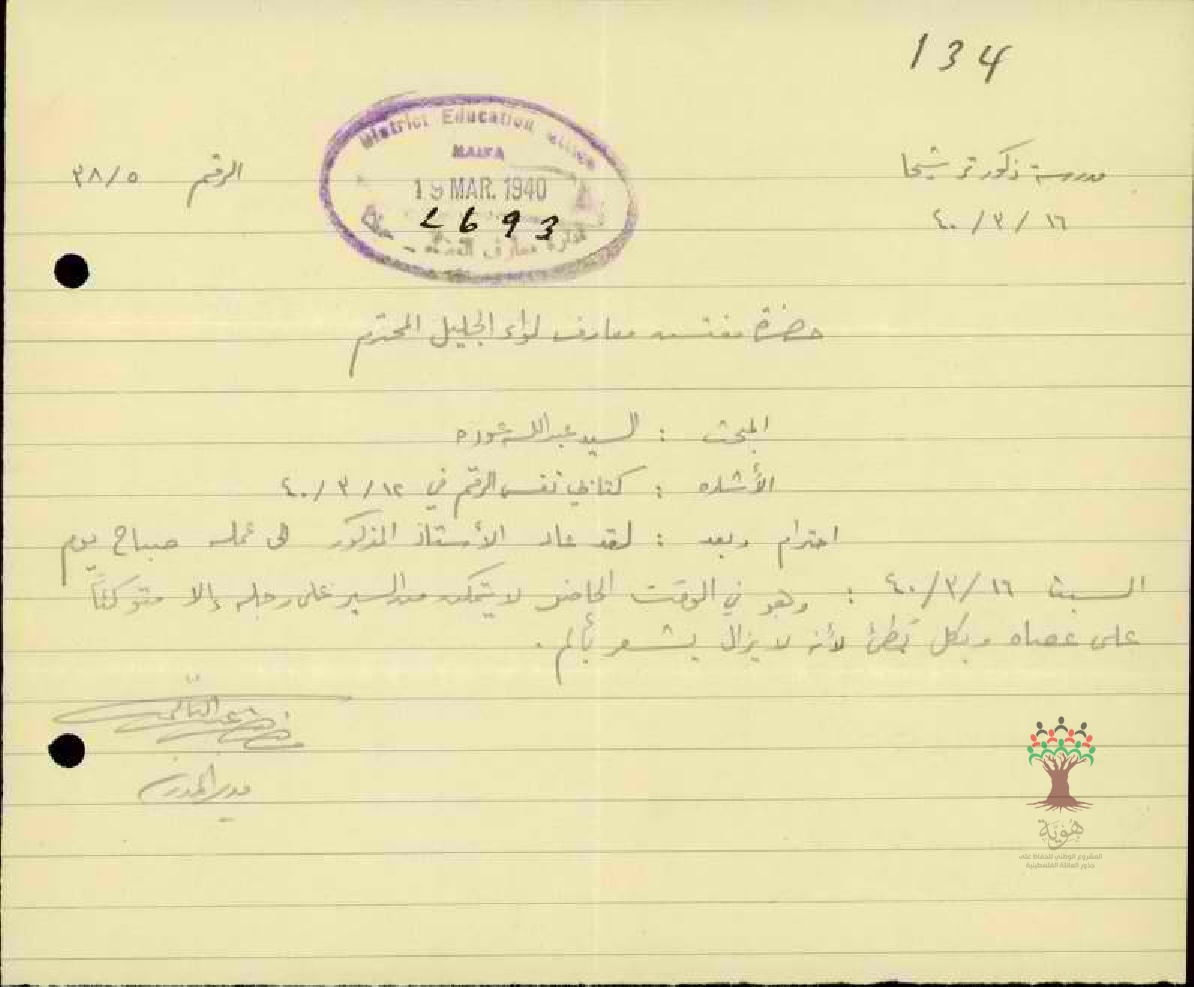 134
District Education Office
HAIFA
19 MAR. 1940
2693
ادارة معارف
مدرسة ذكور ترشيحا
الرقم ٣٨/٥
١٦ / ٣ / ٤٠
حضرة مفتش معارف لواء الجليل المحترم
المبحث : السيد عبدالله
الأشاره : كتابي نفس الرقم في ١٢ / ٣ / ٤٠
احترام وبعد : لقد عاد الأستاذ المذكور الى عمله صباح يوم
السبت ١٦ /٣/ ٤٠ : وهو في الوقت الحاضر لا يتمكن من السير على رجله إلا متوكئاً
على عصاه وبكل تمطئ لأنه لا يزال يشعر بألم .
مدير المدرسة
هُويّة
المشروع الوطني للحفاظ على
جذور العائلة الفلسطينية